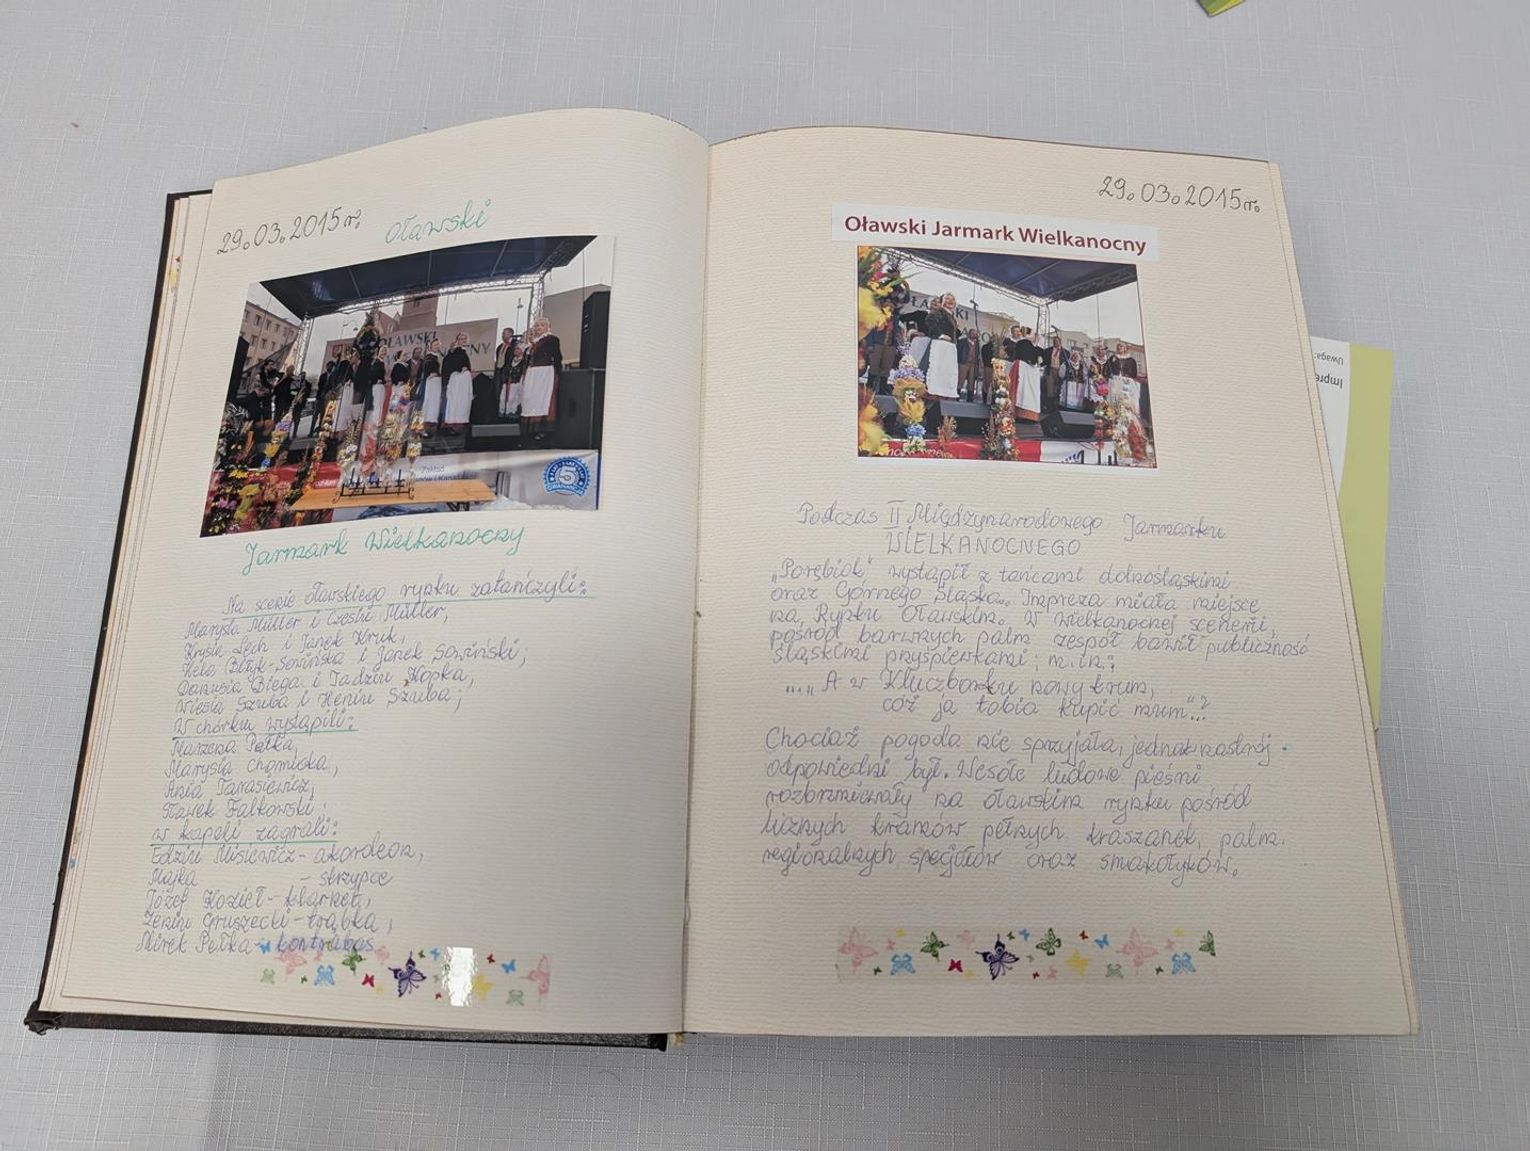 29.03.2015r. Oławski
OŁAWSKI
WIELKANOCNY
Jarmark Wielkanocny
Na scenie oławskiego rynku zatańczyli:
Marysia Müller i Czesiu Müller,
Krysia Lech i Janek Kruk,
Hela Bżyk-Sowińska i Janek Sowiński;
Danusia Biega i Tadziu Kopka,
Wiesia Szuba i Heniu Szuba;
W chórku wystąpili:
Marzena Pełka,
Marysia Chomicka,
Ania Tarasiewicz,
Sławek Falkowski;
w kapeli zagrali:
Edziu Misiewicz - akordeon,
Majka - skrzypce
Józef Kozieł - klarnet,
Zeniu Gruszecki - trąbka,
Mirek Pełka - kontrabas
29.03.2015r.
Oławski Jarmark Wielkanocny
Podczas II Międzynarodowego Jarmarku
WIELKANOCNEGO
„Porębiok" wystąpił z tańcami dolnośląskimi
oraz Górnego Śląska. Impreza miała miejsce
na Rynku Oławskim. W wielkanocnej scenerii,
pośród barwnych palm zespół bawił publiczność
śląskimi przyśpiewkami; m.in.:
...„A w Kluczborku nowy krum,
cóż ja tobia kupić mum"...?
Chociaż pogoda nie sprzyjała, jednak nastrój
odpowiedni był. Wesołe ludowe pieśni
rozbrzmiewały na oławskim rynku pośród
licznych kramów pełnych kraszanek, palm,
regionalnych specjałów oraz smakołyków.
Uwaga: